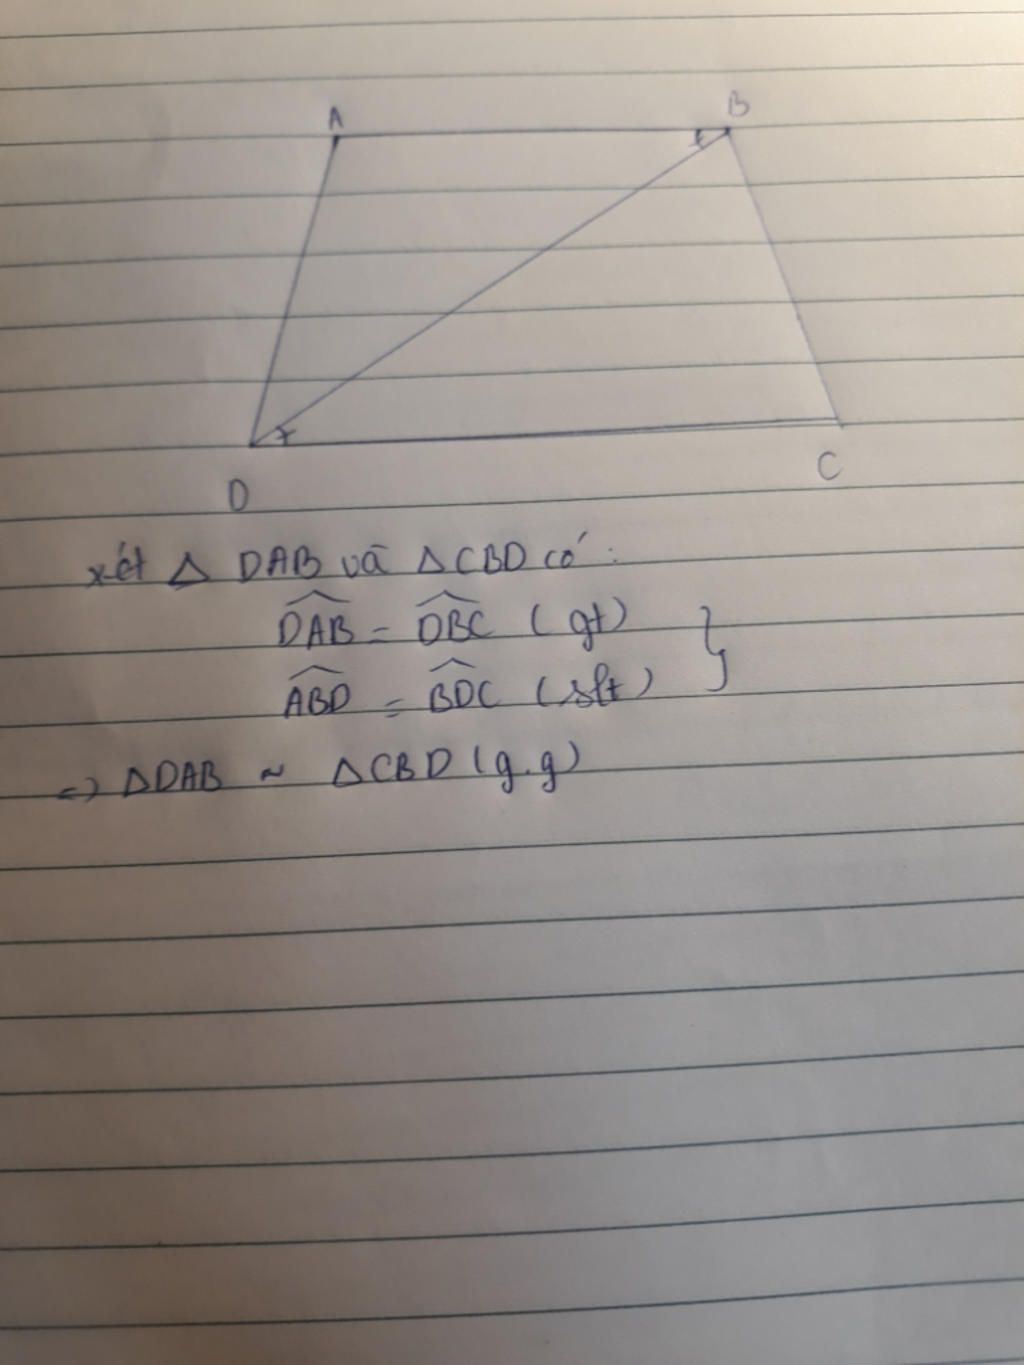 A
B
D
C
xét Δ DAB và ΔCBD có:
DAB = DBC (gt)
ABD = BDC (slt)
=> ΔDAB ~ ΔCBD (g.g)